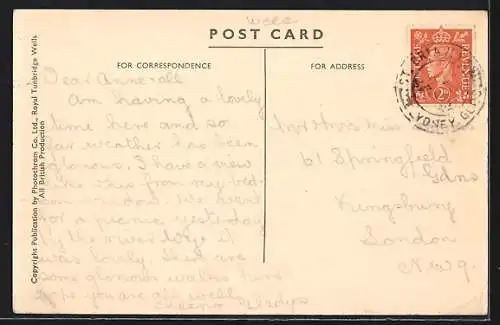 Wces
POST CARD
FOR CORRESPONDENCE
FOR ADDRESS
Copyright Publication by Photochrom Co. Ltd., Royal Tunbridge Wells
All British Production
REVENUE
2D
LYDNEY GLOS
Dear Anne & all
Am having a lovely
time here and so
far weather has been
glorious. I have a view
like this from my bed-
room window. We went
for a picnic yesterday
by the river Wye it
was lovely. There are
some glorious walks here
hope you are all well.
Cheerio Gladys
Miss
61 Springfield
Gdns
Kingsbury
London
N.W.9.